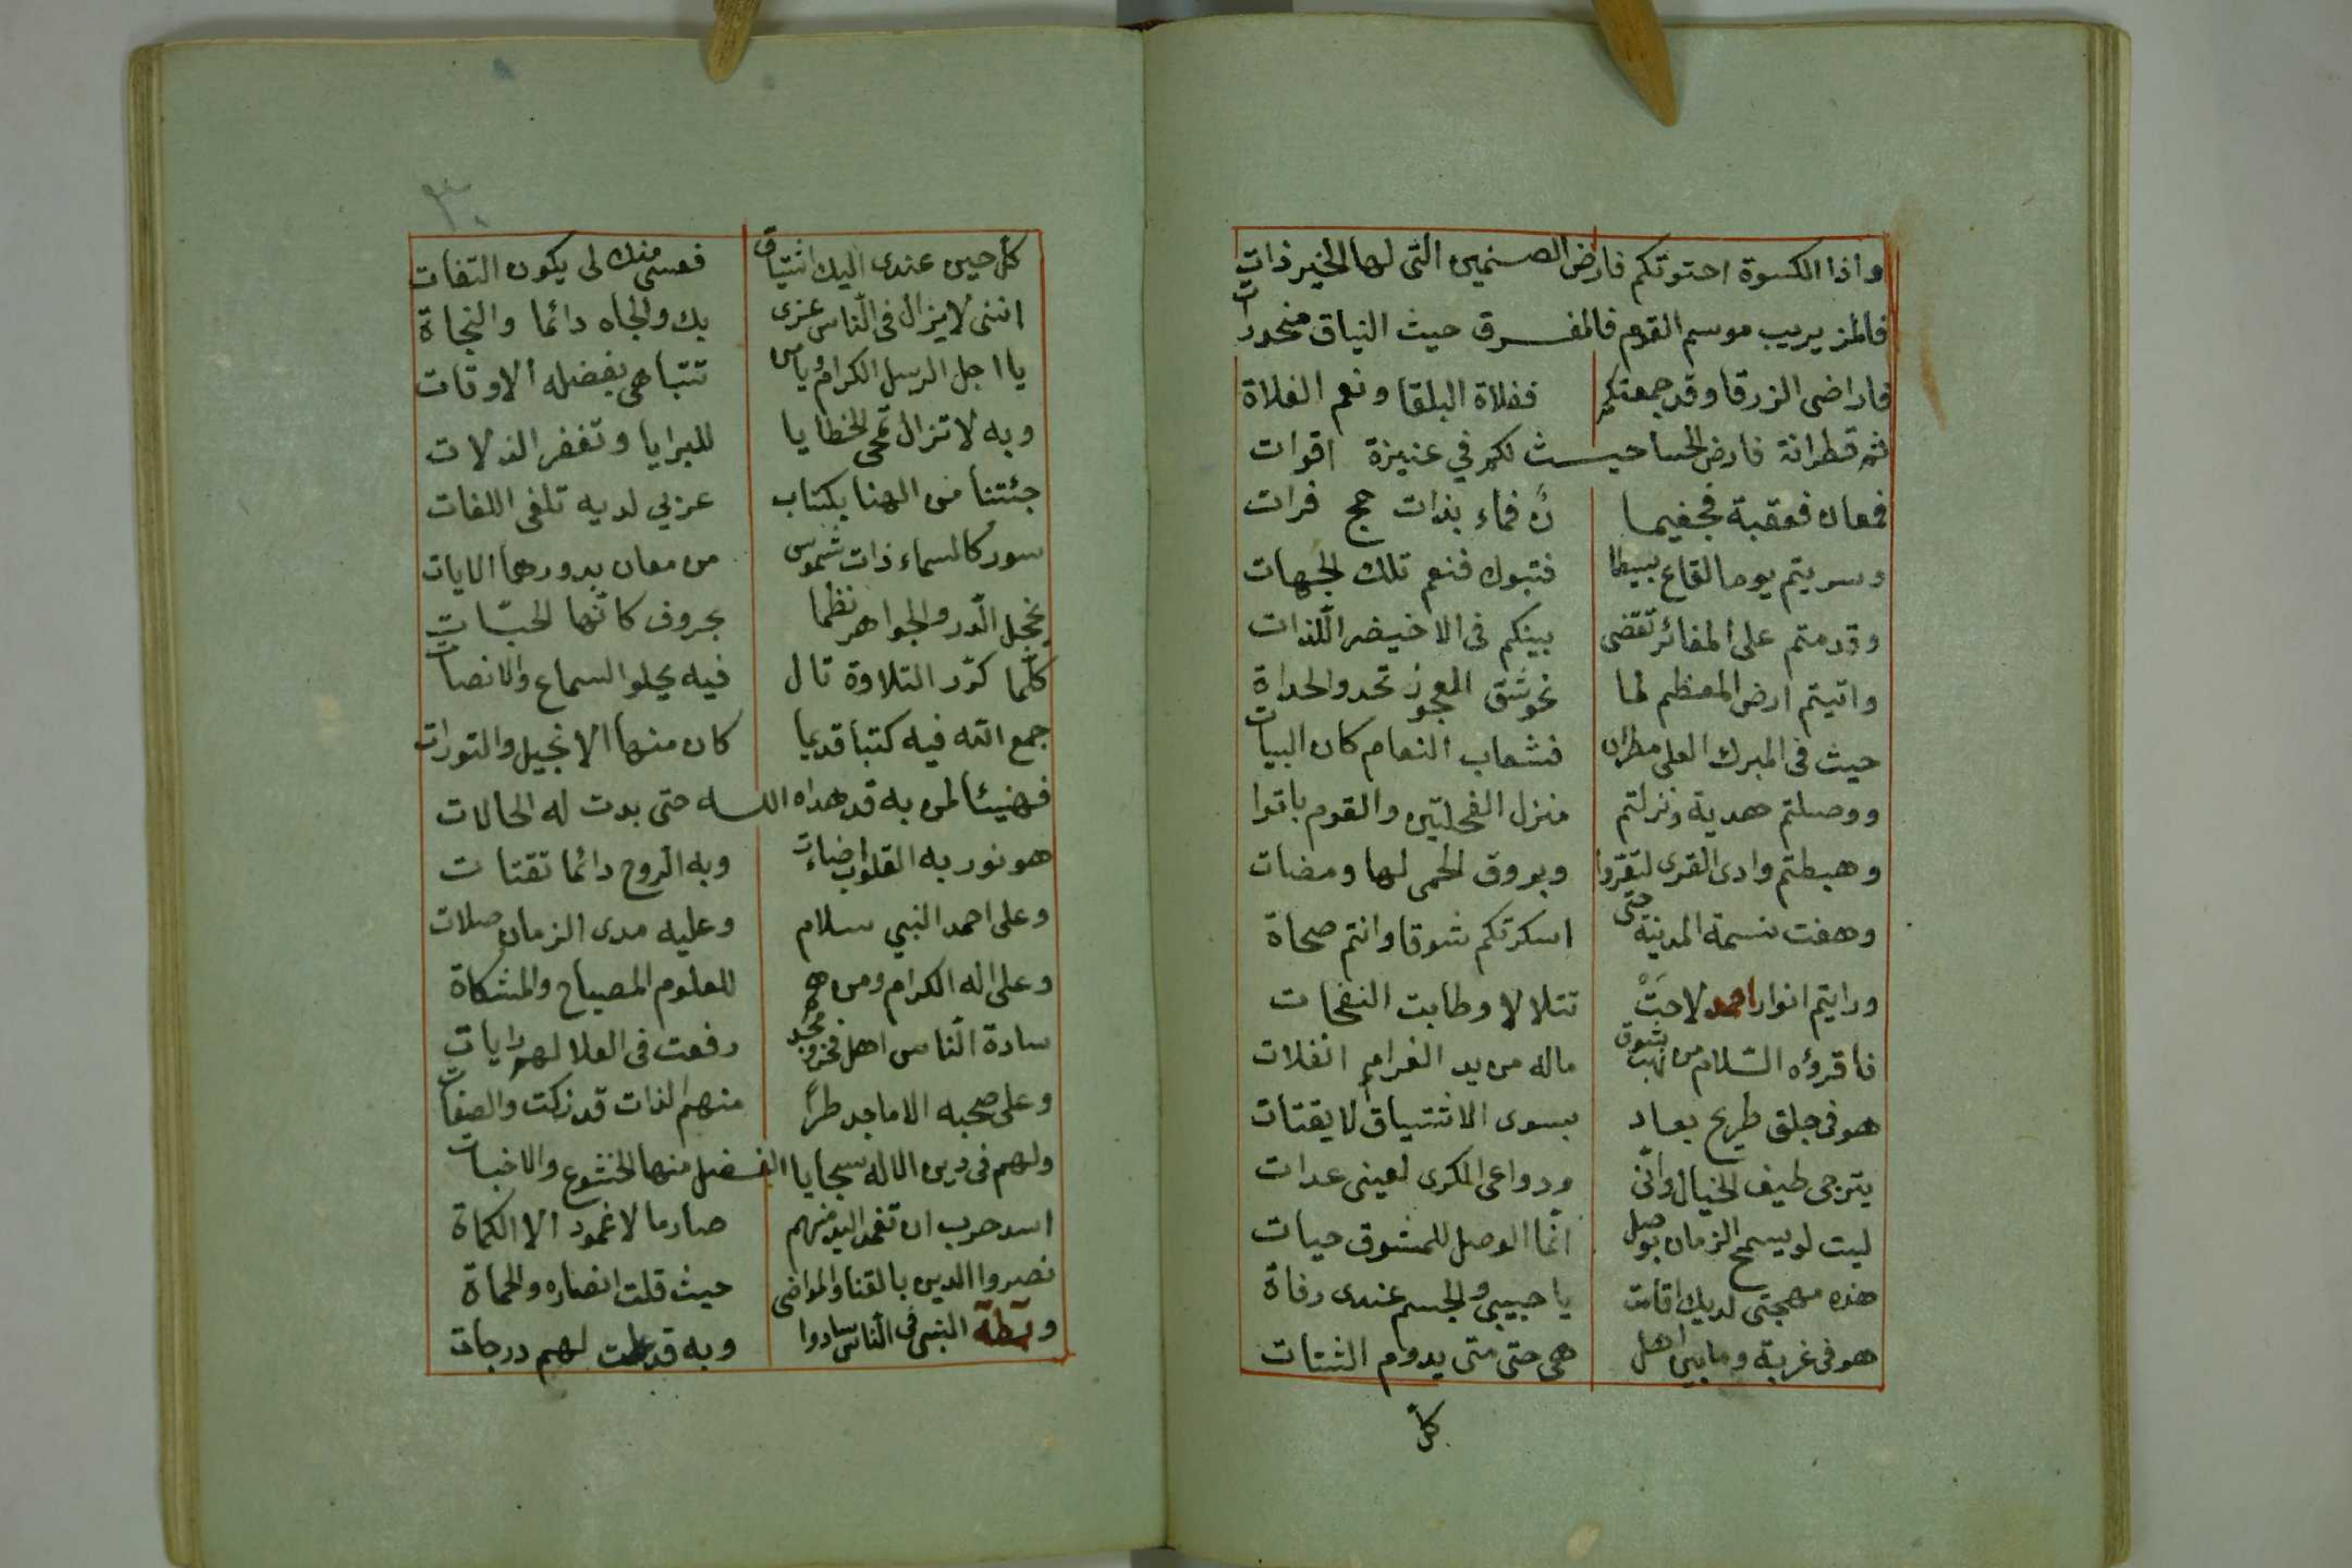 واذا الكسوة احتوتكم فارض الصنمين التى لها الخير ذات
فالمزيريب موسم القوم فالمفرق حيث النياق منحدرات
فاراضى الزرقا وقد جمعتكم ففلاة البلقا ونعم الفلاة
ثم قطرانة فارض الحسا حيث لكم في عنيزة اقوات
فمعان فعقبة فجغيما ن فماء بذات حج فرات
وسريتم يوما لقاع بسيطا فتبوك فنعم تلك الجهات
وقدمتم على المغائر تقضى بينكم فى الاخيضر اللذات
واتيتم ارض المعظم لما نحو شق العجوز تحدو الحداة
حيث فى المبرك العلى مطران فشعاب النعام كان البيات
ووصلتم هدية ونزلتم منزل الفحلتين والقوم باتوا
وهبطتم وادى القرى لتقروا وبروق الحمى لها ومضات
وهفت نسمة المدينة حتى اسكرتكم شوقا وانتم صحاة
ورايتم انوار احمد لاحت تتلالا وطابت النفحات
فاقرؤه السلام من نهب شوق ماله من يد الغرام انفلات
هو فى جلق طريح بعاد بسوى الاشتياق لا يقتات
يترجى طيف الخيال وانى ودواعى الكرى لعينى عدات
ليت لو يسمح الزمان بوصل انما الوصل للمشوق حيات
هذه مهجتى لديك اقامت يا حبيبى والجسم عندى رفاة
هو فى غربة وما بين اهل هى حتى متى يدوم الشتات
كل
٣٠
كل حين عندى اليك اشتياق فعسى منك لى يكون التفات
اننى لا يزال فى الناس عزى بك والجاه دائما والنجاة
يا اجل الرسل الكرام ويا من تتباهى بفضله الاوقات
وبه لا تزال تمحى الخطايا للبرايا وتغفر الذلات
جئتنا من الهنا بكتاب عربي لديه تلغى اللغات
سور كالسماء ذات شموس من معان بدورها الايات
يخجل الدر والجواهر نظما بحروف كانها الحبات
كلما كرر التلاوة تال فيه يحلو السماع والانصات
جمع الله فيه كتبا قديما كان منها الانجيل والتورات
فهنيئا لمن به قد هداه الله حتى بدت له الحالات
هو نور به القلوب اضاءت وبه الروح دائما تقتات
وعلى احمد النبي سلام وعليه مدى الزمان صلات
وعلى اله الكرام ومن هم للعلوم المصباح والمشكاة
سادة الناس اهل فخر ومجد رفعت فى العلا لهم رايات
وعلى صحبه الاماجد طرا منهم الذات قد زكت والصفات
ولهم فى دين الاله سجايا الفضل منها الخشوع والاخبات
اسد حرب ان تغمد اليد منهم صارما لا غمود الا الكماة
نصروا الدين بالقنا والمواضى حيث قلت انصاره والحماة
وبطه النبى فى الناس سادوا وبه قد علت لهم درجات